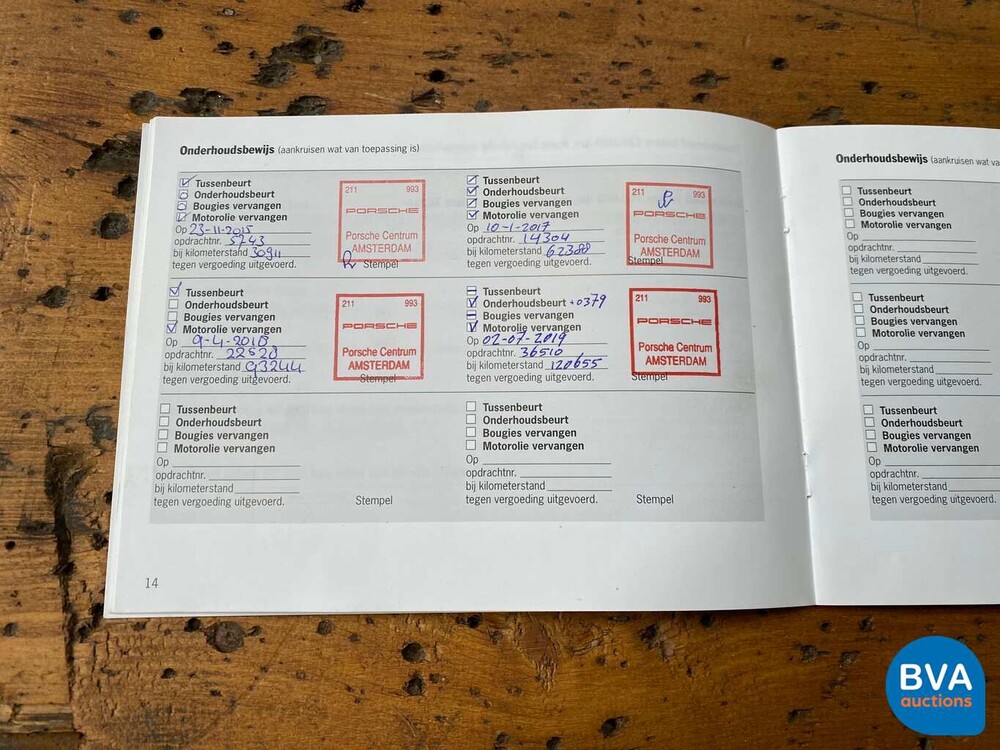 Onderhoudsbewijs (aankruisen wat van toepassing is)
Tussenbeurt
Onderhoudsbeurt
Bougies vervangen
Motorolie vervangen
Op 23-11-2015
opdrachtnr. 5743
bij kilometerstand 30911
tegen vergoeding uitgevoerd.
211 993
PORSCHE
Porsche Centrum
AMSTERDAM
Stempel
Tussenbeurt
Onderhoudsbeurt
Bougies vervangen
Motorolie vervangen
Op 10-1-2017
opdrachtnr. 14304
bij kilometerstand 62388
tegen vergoeding uitgevoerd.
211 993
PORSCHE
Porsche Centrum
AMSTERDAM
Stempel
Tussenbeurt
Onderhoudsbeurt
Bougies vervangen
Motorolie vervangen
Op 9-4-2018
opdrachtnr. 22528
bij kilometerstand 93244
tegen vergoeding uitgevoerd.
211 993
PORSCHE
Porsche Centrum
AMSTERDAM
Stempel
Tussenbeurt
Onderhoudsbeurt +0379
Bougies vervangen
Motorolie vervangen
Op 02-07-2019
opdrachtnr. 36510
bij kilometerstand 120655
tegen vergoeding uitgevoerd.
211 993
PORSCHE
Porsche Centrum
AMSTERDAM
Stempel
Tussenbeurt
Onderhoudsbeurt
Bougies vervangen
Motorolie vervangen
Op
opdrachtnr.
bij kilometerstand
tegen vergoeding uitgevoerd.
Stempel
Tussenbeurt
Onderhoudsbeurt
Bougies vervangen
Motorolie vervangen
Op
opdrachtnr.
bij kilometerstand
tegen vergoeding uitgevoerd.
Stempel
14
Onderhoudsbewijs (aankruisen wat va
Tussenbeurt
Onderhoudsbeurt
Bougies vervangen
Motorolie vervangen
Op
opdrachtnr.
bij kilometerstand
tegen vergoeding uitgevoerd.
Tussenbeurt
Onderhoudsbeurt
Bougies vervangen
Motorolie vervangen
Op
opdrachtnr.
bij kilometerstand
tegen vergoeding uitgevoerd.
Tussenbeurt
Onderhoudsbeurt
Bougies vervangen
Motorolie vervangen
Op
opdrachtnr.
bij kilometerstand
tegen vergoeding uitgevoerd.
BVA
auctions